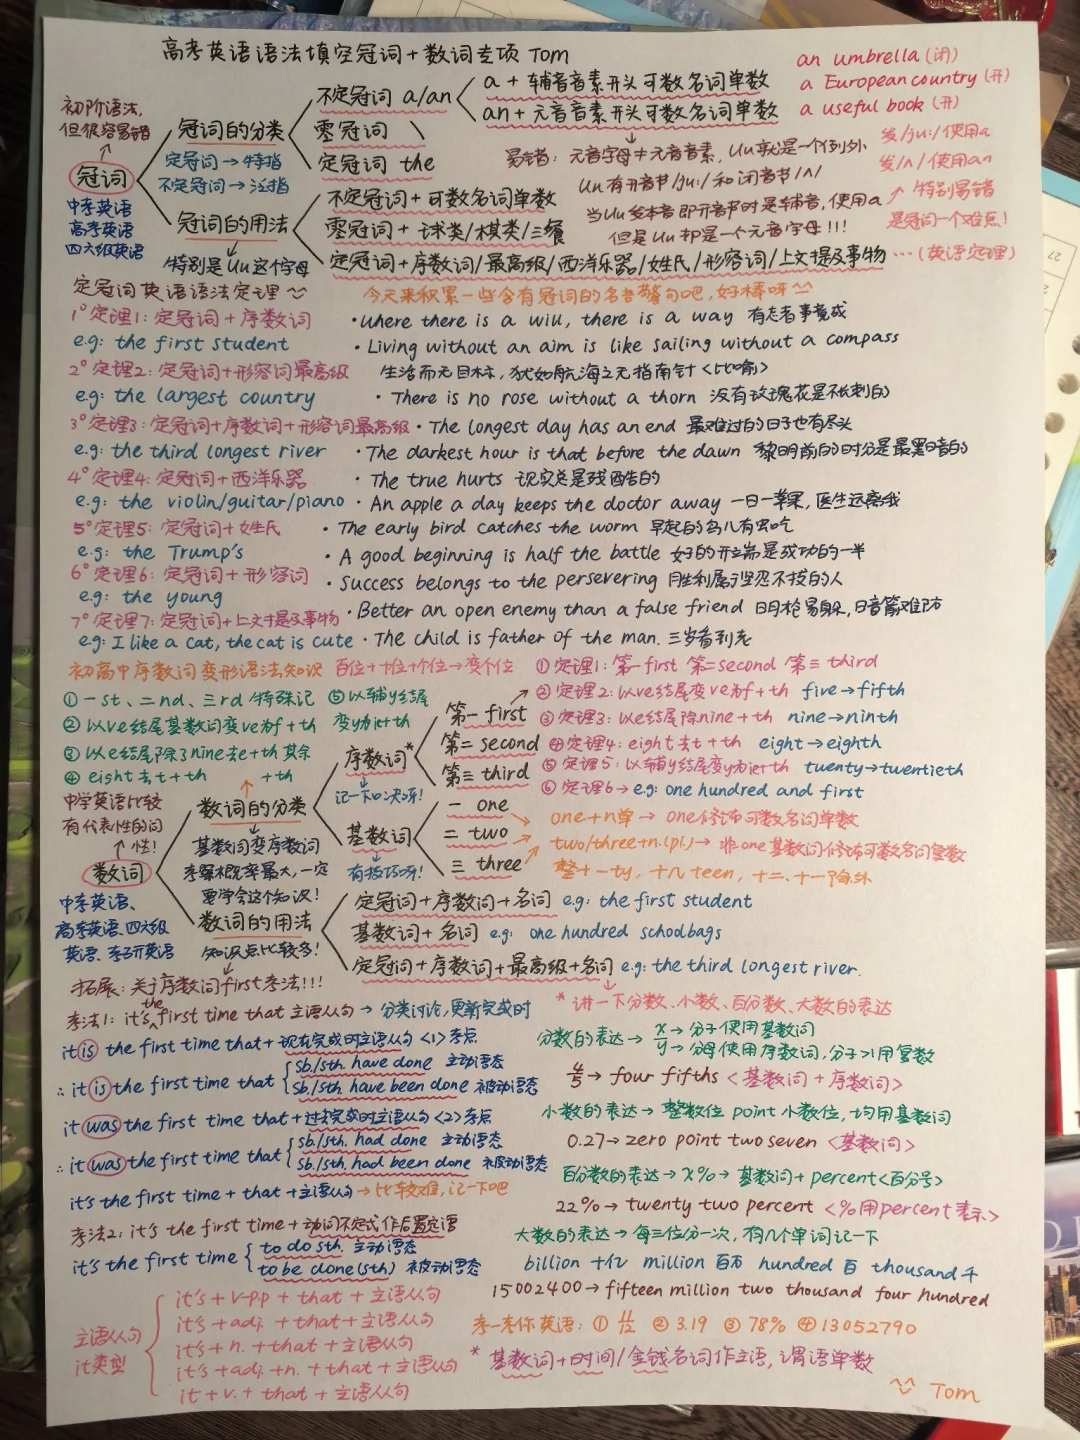 高考英语语法填空冠词+数词专项 Tom
an umbrella (闭)
a European country (开)
a useful book (开)
发/ju:/使用a
发/ʌ/使用an
特别易错
是冠词一个难点!
初阶语法,
但很容易错
冠词
中考英语
高考英语
四六级英语
冠词的分类
定冠词→特指
不定冠词→泛指
不定冠词 a/an
a+辅音音素开头可数名词单数
an+元音音素开头可数名词单数
零冠词 \
定冠词 the
易错者: 元音字母≠元音音素, Uu就是一个例外
Uu有开音节/ju:/和闭音节/ʌ/
当Uu发本音即开音节时是辅音,使用a
但是Uu却是一个元音字母!!!
冠词的用法
特别是Uu这个字母
不定冠词+可数名词单数
零冠词+球类/棋类/三餐
定冠词+序数词/最高级/西洋乐器/姓氏/形容词/上文提及事物 …(英语定理)
定冠词英语语法定理
今天来积累一些含有冠词的名言警句吧,好棒呀
1°定理1: 定冠词+序数词
e.g: the first student
2°定理2: 定冠词+形容词最高级
e.g: the largest country
3°定理3: 定冠词+序数词+形容词最高级
e.g: the third longest river
4°定理4: 定冠词+西洋乐器
e.g: the violin/guitar/piano
5°定理5: 定冠词+姓氏
e.g: the Trump's
6°定理6: 定冠词+形容词
e.g: the young
7°定理7: 定冠词+上文提及事物
e.g: I like a cat, the cat is cute
·Where there is a will, there is a way 有志者事竟成
·Living without an aim is like sailing without a compass
生活而无目标,犹如航海之无指南针<比喻>
·There is no rose without a thorn 没有玫瑰花是不长刺的
·The longest day has an end 最难过的日子也有尽头
·The darkest hour is that before the dawn 黎明前的时分是最黑暗的
·The true hurts 现实总是残酷的
·An apple a day keeps the doctor away 一日一苹果,医生远离我
·The early bird catches the worm 早起的鸟儿有虫吃
·A good beginning is half the battle 好的开端是成功的一半
·Success belongs to the persevering 胜利属于坚忍不拔的人
·Better an open enemy than a false friend 明枪易躲,暗箭难防
·The child is father of the man. 三岁看到老
初高中序数词变形语法知识 百位+十位+个位→变个位
①一st、二nd、三rd特殊记
②以ve结尾基数词变ve为f+th
③以e结尾除了nine去e+th 其余
④eight去t+th +th
⑤以辅y结尾
变y为ie+th
①定理1: 第一first 第二second 第三third
②定理2: 以ve结尾变ve为f+th five→fifth
③定理3: 以e结尾除nine+th nine→ninth
④定理4: eight去t+th eight→eighth
⑤定理5: 以辅y结尾变y为ie+th twenty→twentieth
⑥定理6→e.g: one hundred and first
中学英语比较
有代表性的词
性!
数词
中考英语、
高考英语、四六级
英语、考研英语
数词的分类
基数词变序数词
考察概率最大,一定
要学会这个知识!
序数词*
记一下口决呀!
第一 first
第二 second
第三 third
基数词
有技巧呀!
一 one
二 two
三 three
one+n单→one修饰可数名词单数
two/three+n.(pl.)→非one基数词修饰可数名词复数
整十-ty, 十几teen, 十二、十一除外
数词的用法
知识点比较多!
定冠词+序数词+名词 e.g: the first student
基数词+名词 e.g: one hundred schoolbags
定冠词+序数词+最高级+名词 e.g: the third longest river.
拓展: 关于序数词first考法!!!
考法1: it's the first time that 主语从句→分类讨论,更新完成时
it is the first time that+现在完成时主语从句<1>考点
∴ it is the first time that
sb./sth. have done 主动语态
sb./sth. have been done 被动语态
it was the first time that+过去完成时主语从句<2>考点
∴ it was the first time that
sb./sth. had done 主动语态
sb./sth. had been done 被动语态
it's the first time + that + 主语从句→比较难,记一下吧
考法2: it's the first time+动词不定式作后置定语
it's the first time
to do sth. 主动语态
to be done(sth) 被动语态
主语从句
it类型
it's + v-pp + that + 主语从句
it's + adj. + that + 主语从句
it's + n. + that + 主语从句
it's + adj. + n. + that + 主语从句
it + v. + that + 主语从句
*讲一下分数、小数、百分数、大数的表达
分数的表达→ x/y →分子使用基数词
→分母使用序数词,分子>1用复数
4/5→ four fifths <基数词+序数词>
小数的表达→整数位 point 小数位,均用基数词
0.27→zero point two seven <基数词>
百分数的表达→x%→基数词+percent<百分号>
22%→twenty two percent <%用percent表示>
大数的表达→每三位分一次,有几个单词记一下
billion 十亿 million 百万 hundred 百 thousand 千
15002400→fifteen million two thousand four hundred
考一考你英语: ① 1/12 ② 3.19 ③ 78% ④ 13052790
*基数词+时间/金钱名词作主语,谓语单数
Tom